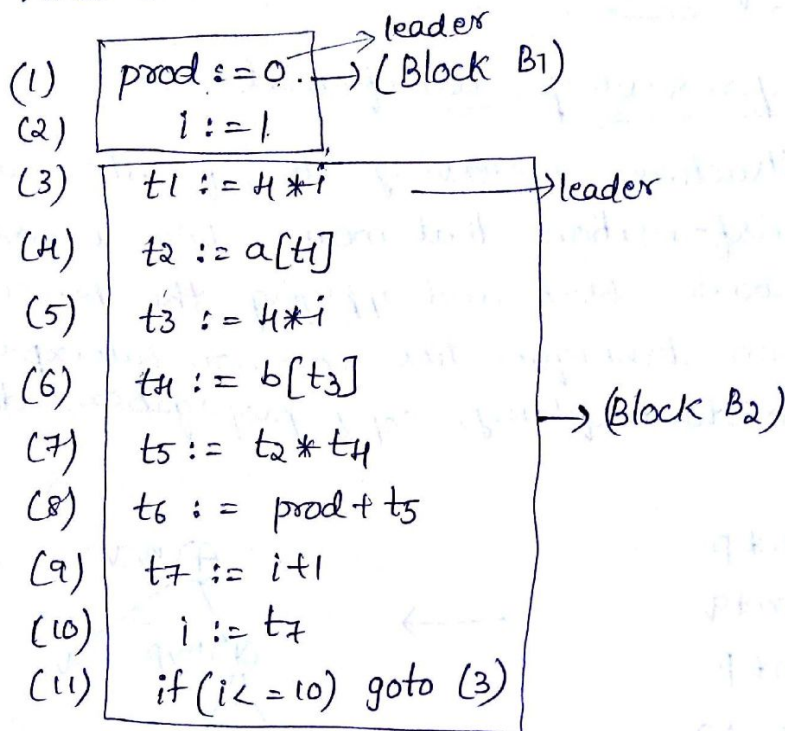 leader
(1) prod := 0. → (Block B1)
(2) i := 1
(3) t1 := 4*i → leader
(4) t2 := a[t1]
(5) t3 := 4*i
(6) t4 := b[t3]
(7) t5 := t2 * t4
(8) t6 := prod + t5
(9) t7 := i+1
(10) i := t7
(11) if (i<=10) goto (3)
→ (Block B2)